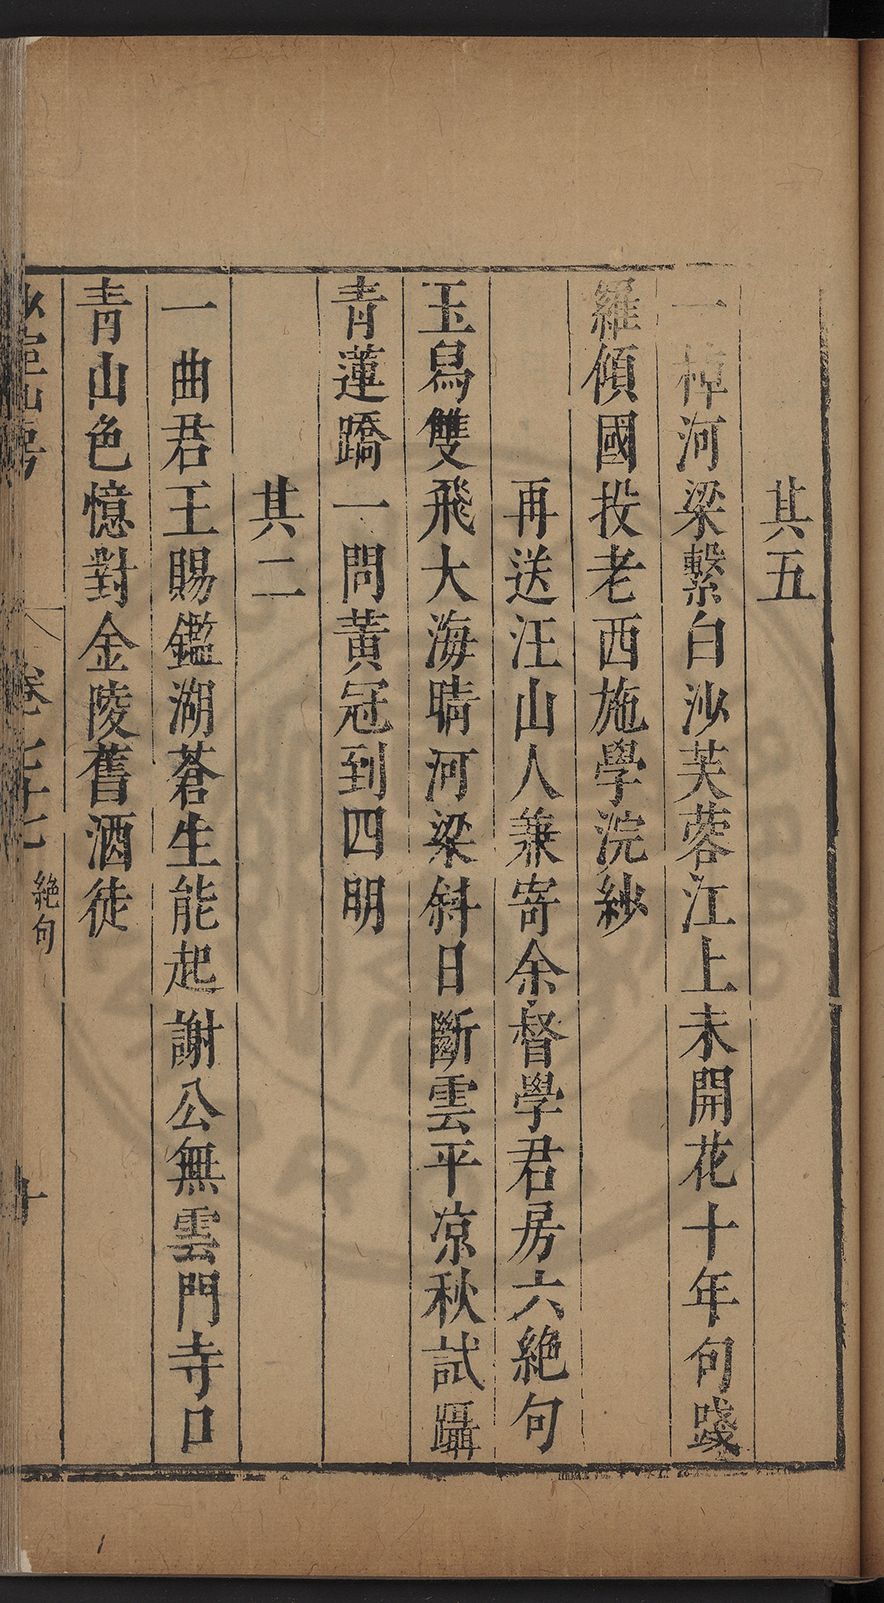 其五
一樟河梁繫白沙芙蓉江上未開花十年句踐
羅傾國投老西施學浣紗
再送汪山人兼寄余督學君房六絕句
玉舄雙飛大海晴河梁斜日斷雲平凉秋試躡
青蓮蹻一問黃冠到四明
其二
一曲君王賜鑑湖蒼生能起謝公無雲門寺口
青山色憶對金陵舊酒徒
卷 絕句
十